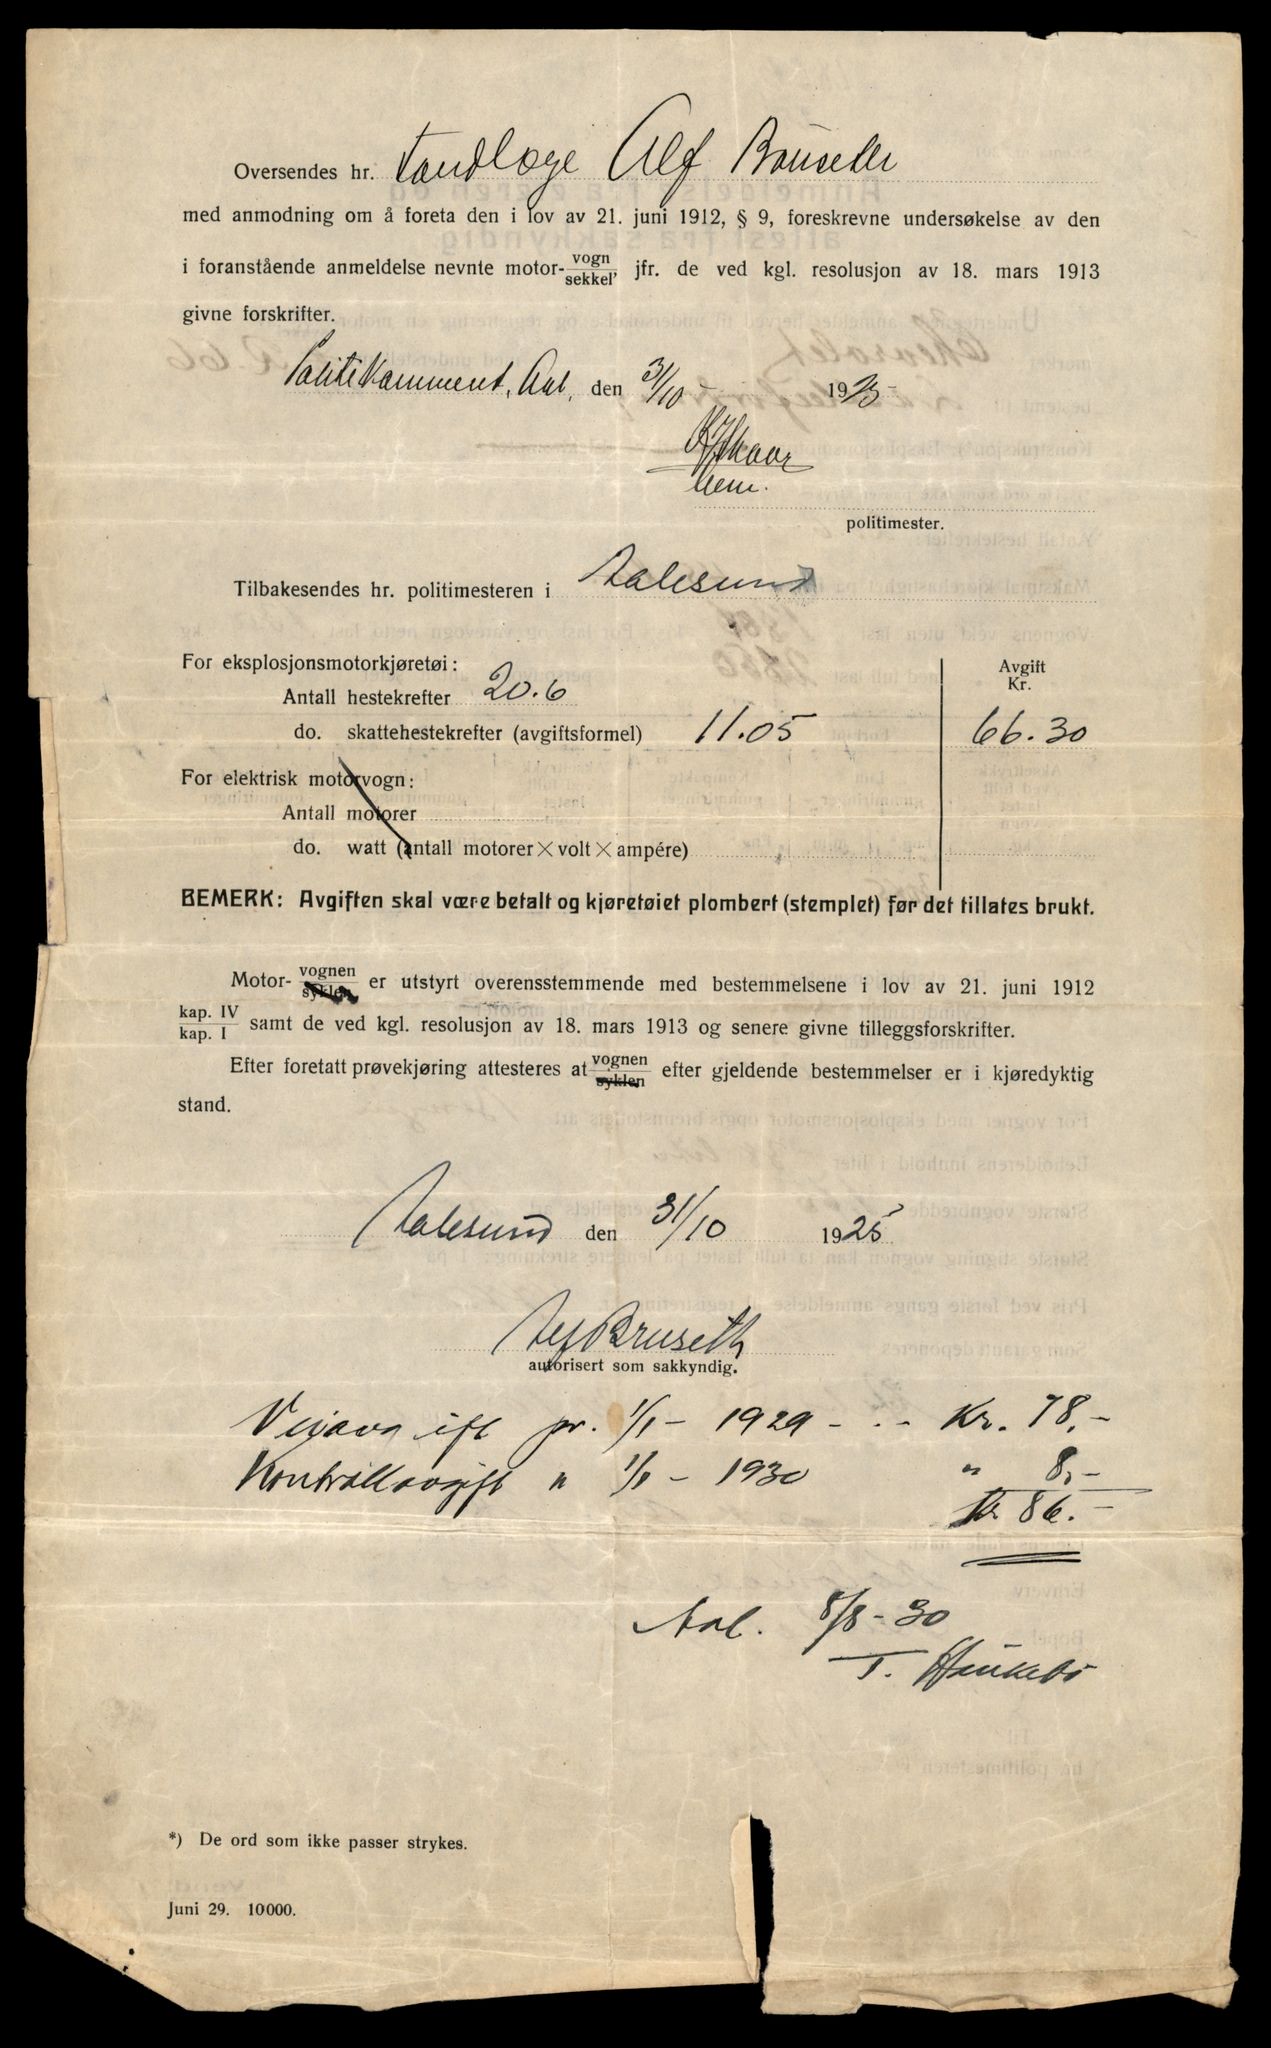 Oversendes hr. Tandlæge Alf Bruseth
med anmodning om å foreta den i lov av 21. juni 1912, § 9, foreskrevne undersøkelse av den
i foranstående anmeldelse nevnte motor- vogn
sekkel, jfr. de ved kgl. resolusjon av 18. mars 1913
givne forskrifter.
Politikammeret, Aal, den 31/10 1925
politimester.
Tilbakesendes hr. politimesteren i Aalesund
For eksplosjonsmotorkjøretøi: Avgift
Kr.
Antall hestekrefter 20.6
do. skattehestekrefter (avgiftsformel) 11.05 66.30
For elektrisk motorvogn:
Antall motorer
do. watt (antall motorer × volt × ampére)
BEMERK: Avgiften skal være betalt og kjøretøiet plombert (stemplet) før det tillates brukt.
Motor- vognen
syklen er utstyrt overensstemmende med bestemmelsene i lov av 21. juni 1912
kap. IV
kap. I samt de ved kgl. resolusjon av 18. mars 1913 og senere givne tilleggsforskrifter.
Efter foretatt prøvekjøring attesteres at vognen
syklen efter gjeldende bestemmelser er i kjøredyktig
stand.
Aalesund den 31/10 1925
Alf Bruseth
autorisert som sakkyndig.
Veiavgift pr. 1/1 - 1929 - - - Kr. 78.-
Kontrollavgift " 1/1 - 1930 " 8.-
Kr 86.-
Aal. 8/8 - 30
*) De ord som ikke passer strykes.
Juni 29. 10000.